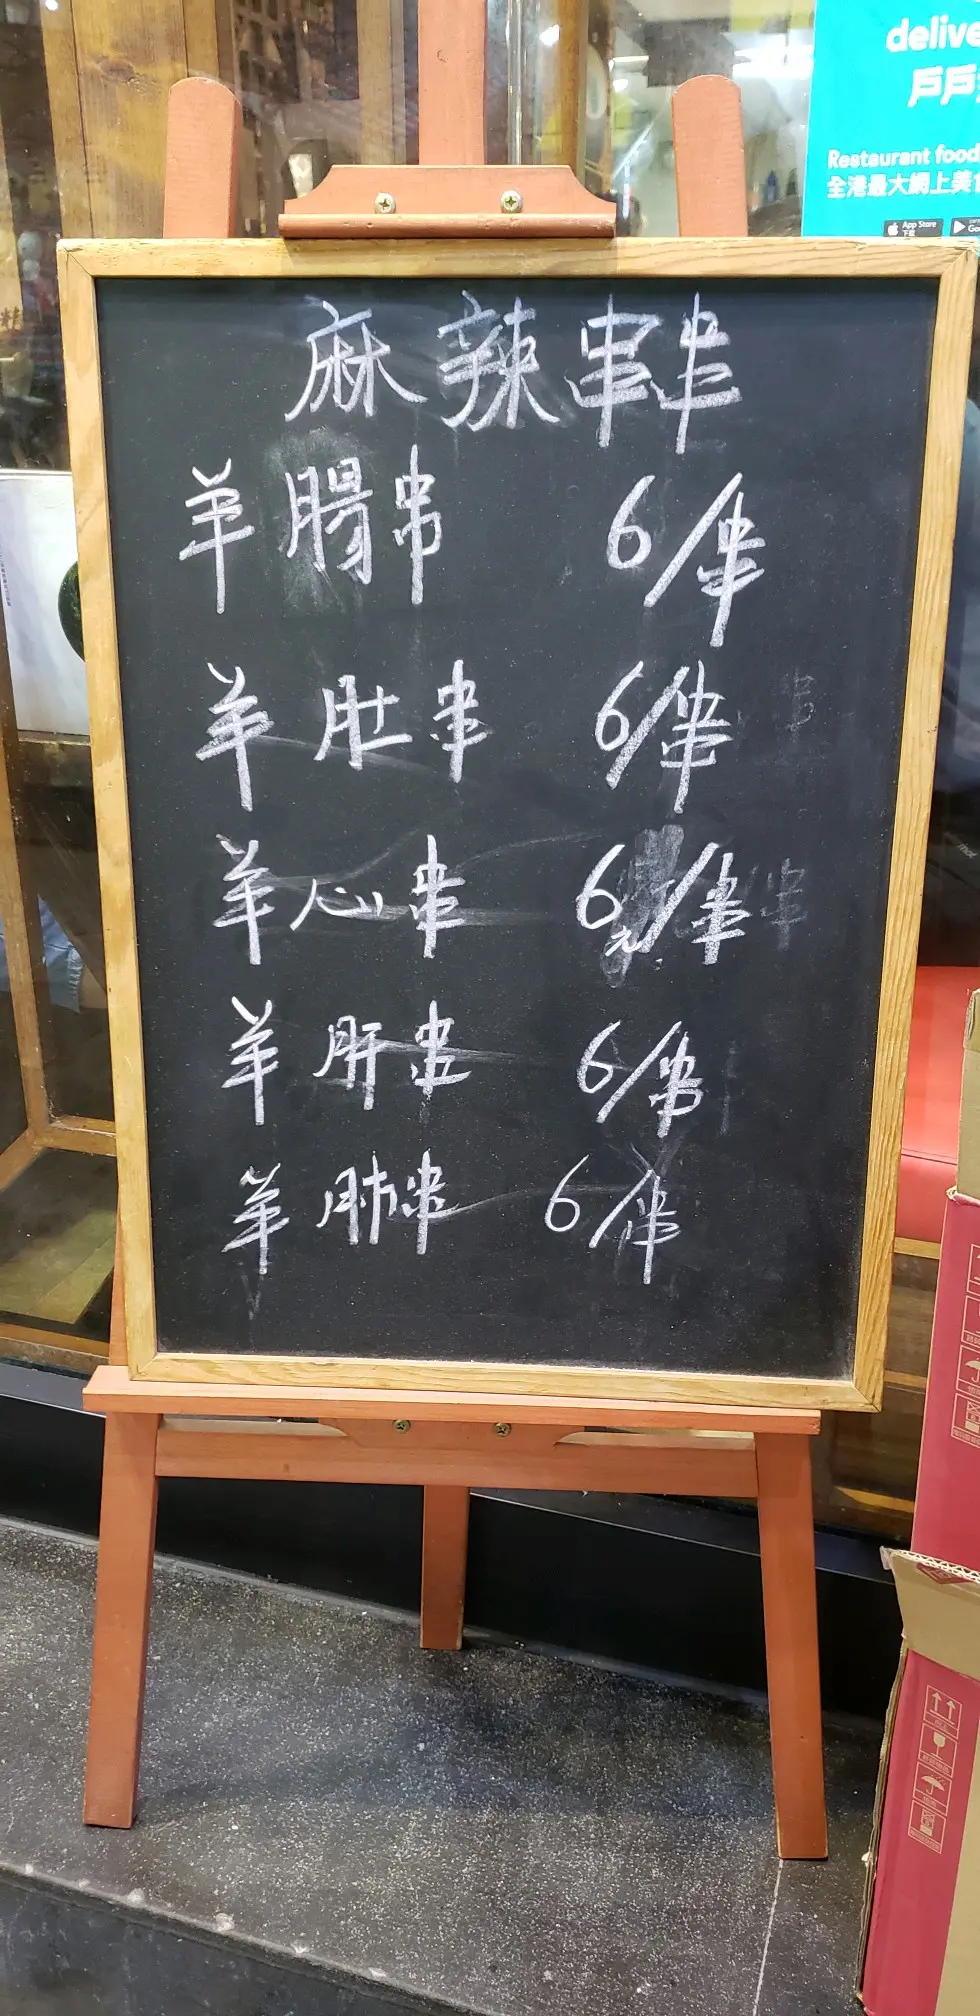 delive
戶戶
Restaurant food
全港最大網上美食
App Store
下載
麻辣串串
羊腸串 6/串
羊肚串 6/串
羊心串 6元/串
羊肝串 6/串
羊肺串 6/串